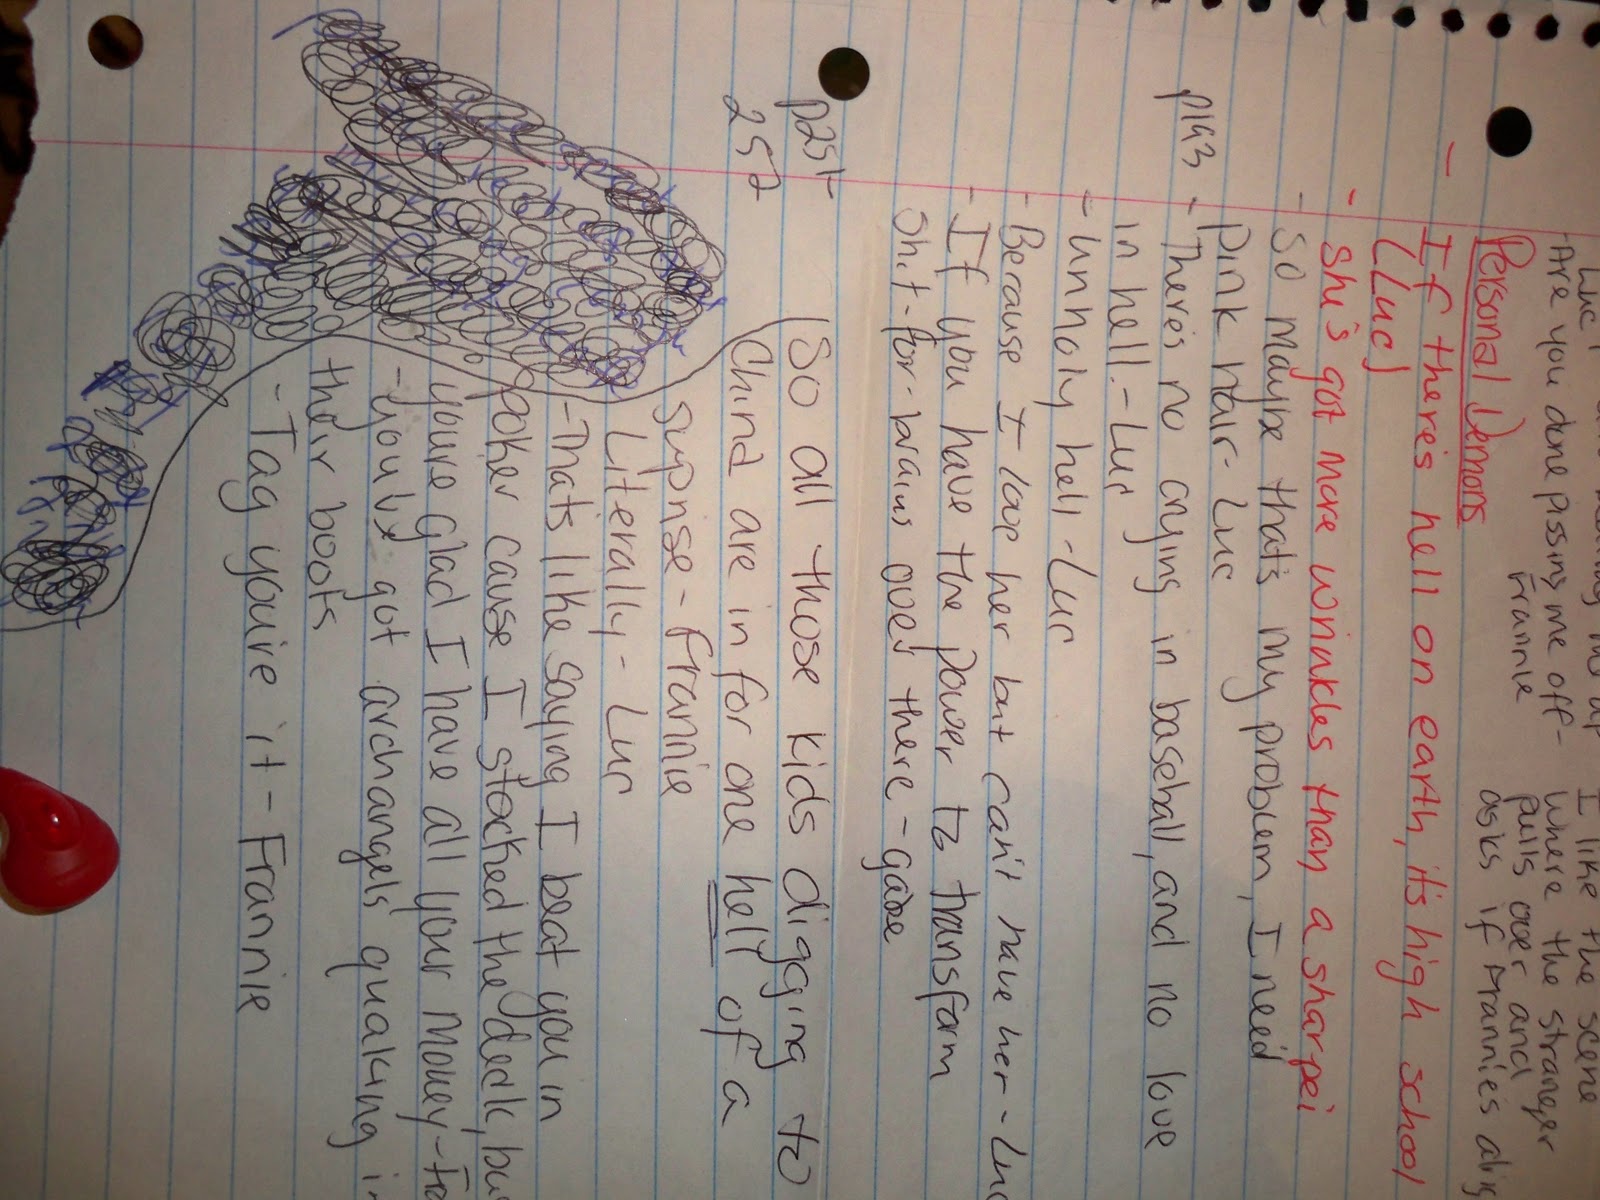 Are you done pissing me off-
Frannie
I like the scene
where the stranger
pulls over and
asks if Frannies
Personal Demons
- If there's hell on earth, it's high school
(Luc)
- She's got more wrinkles than a sharpei
- So maybe that's my problem, I need
pink hair- Luc
p193 - There's no crying in baseball, and no love
in hell.- Luc
- unholy hell - Luc
- Because I love her but can't have her - Luc
- If you have the power to transform
Shit-for-brains over there - gabe
p251- So all those kids digging to
252 China are in for one hell of a
suprise - Frannie
Literally - Luc
-Thats like saying I beat you in
poker cause I stacked the deck, but
youre glad I have all your money-
-you've got archangels quaking in
their boots
-Tag you're it - Frannie